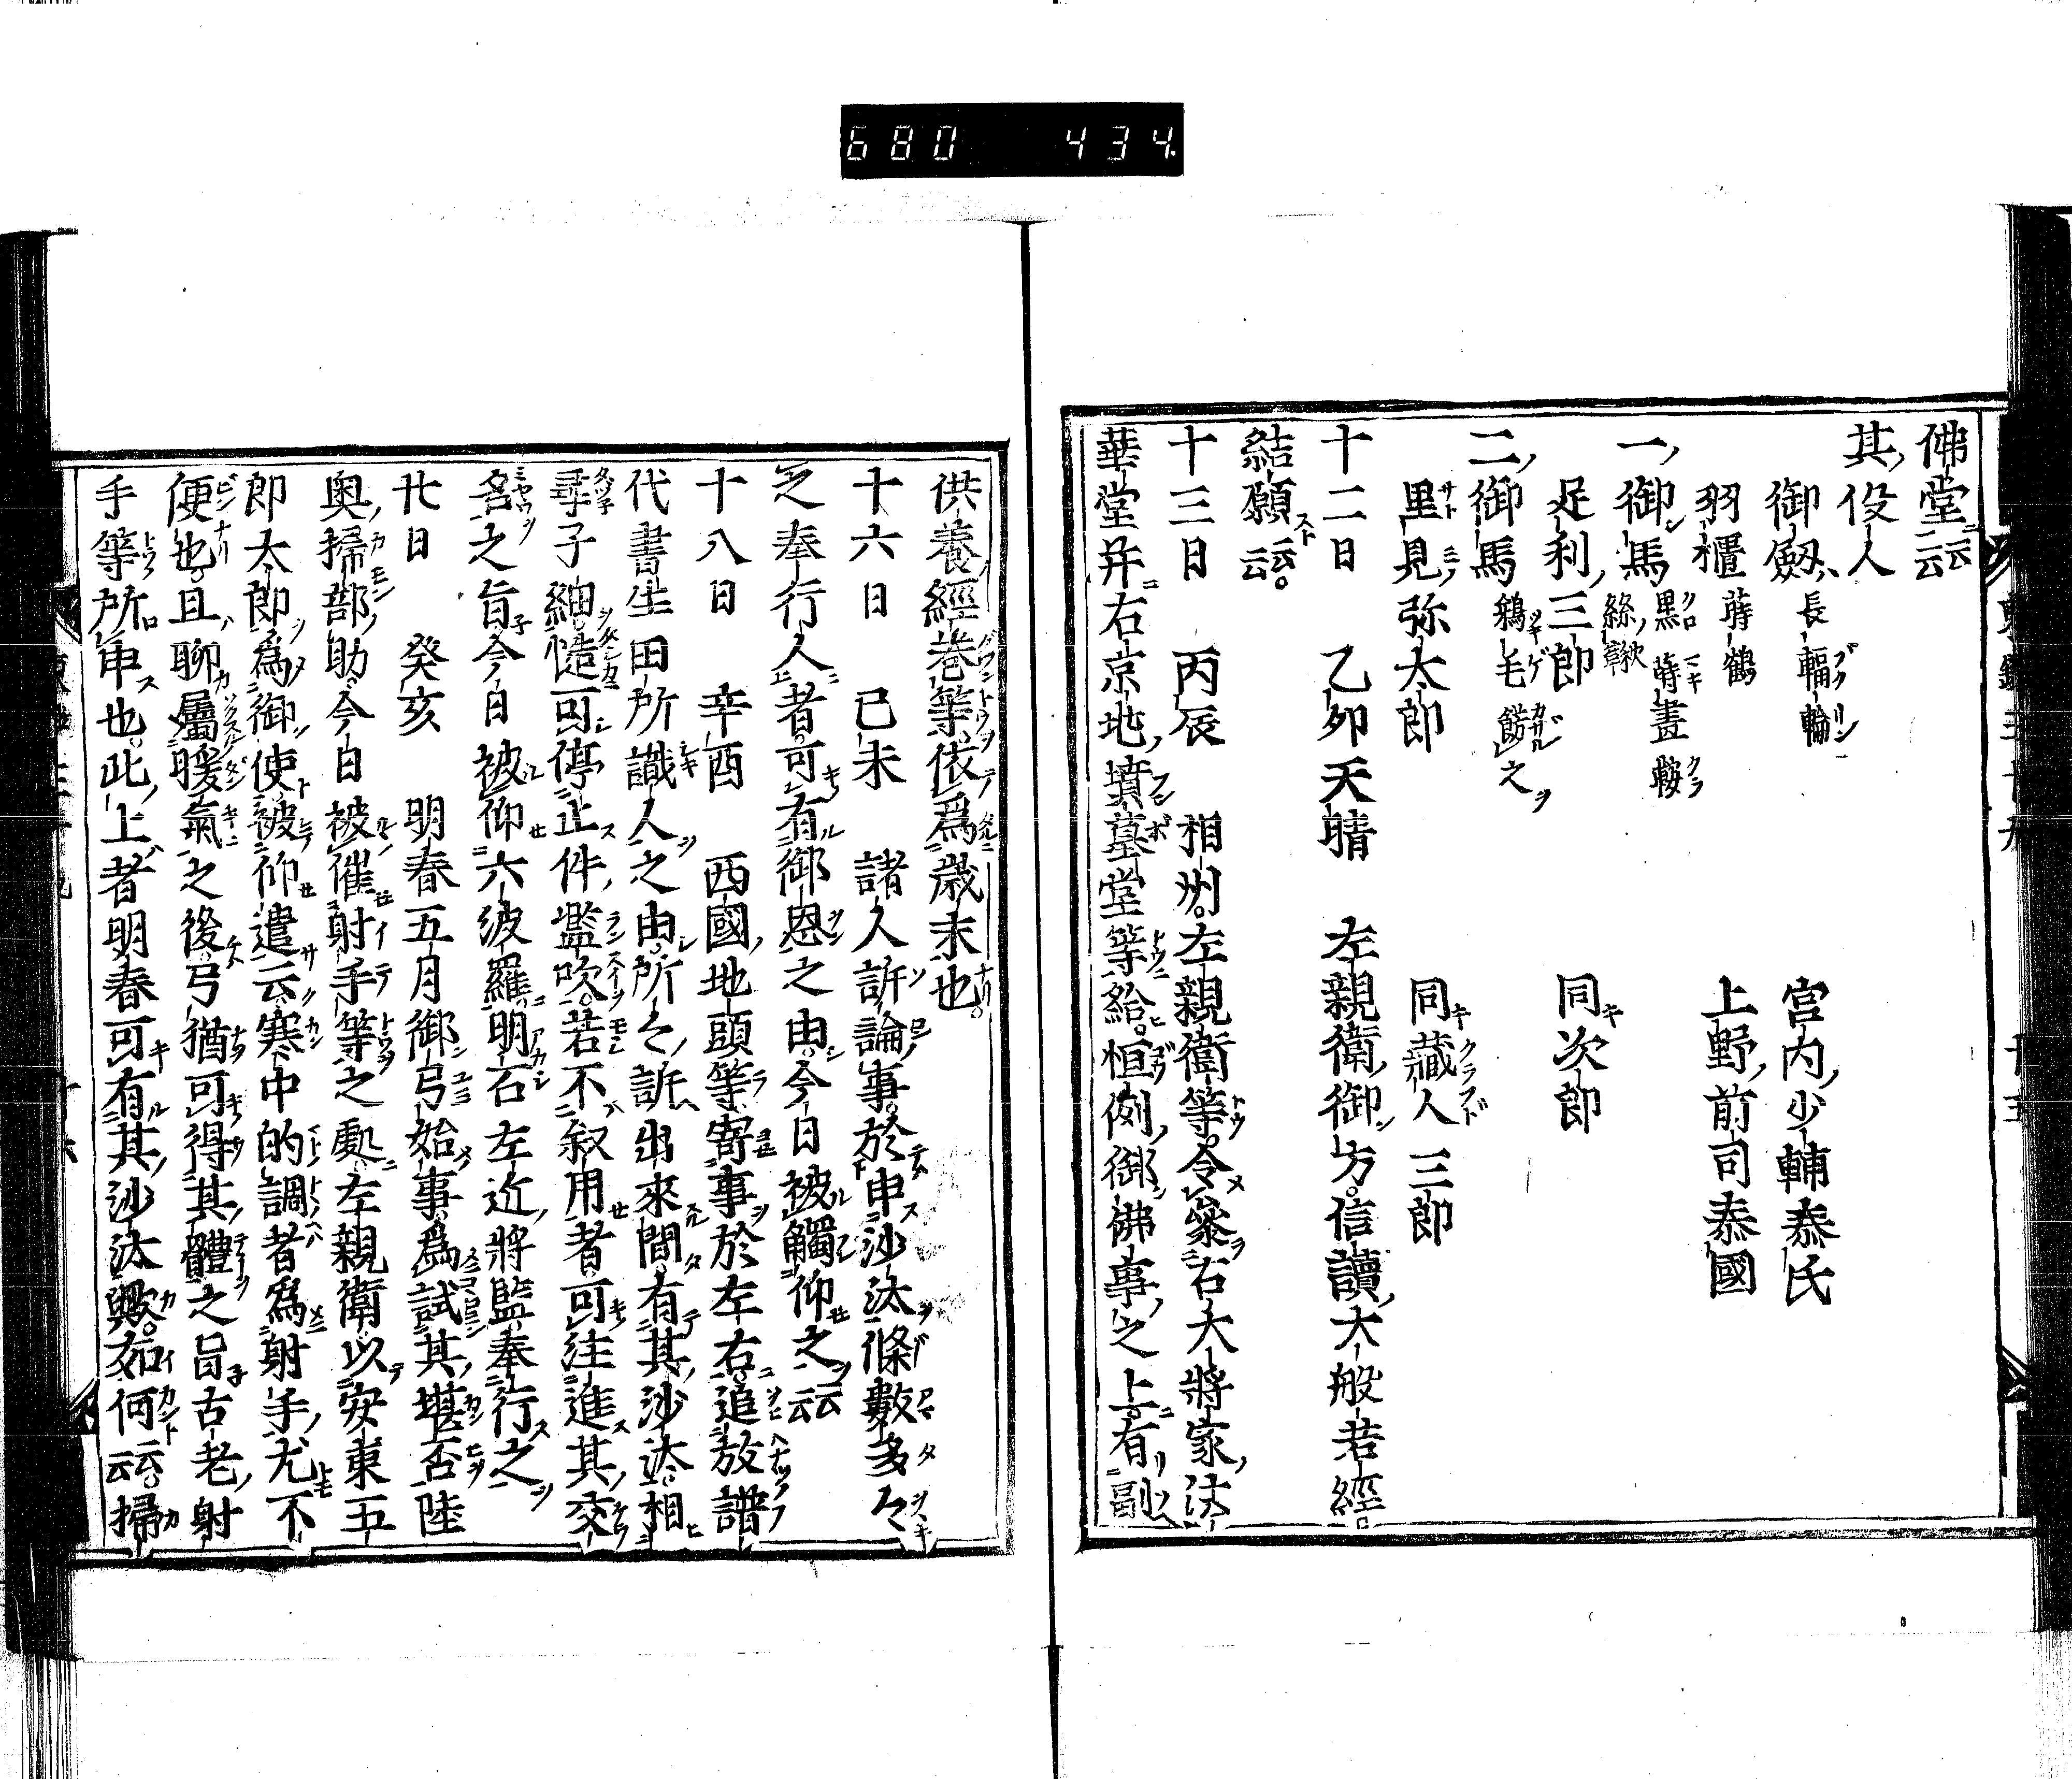 680 434
佛堂云云
其役人
御劔 長輻輪 宮内少輔泰氏
羽櫃 蒔鶴 上野前司泰國
一御馬 黒 蒔畫鞍 絲鞦
足利三郎 同次郎
二御馬 鵇毛 餝之
里見弥太郎 同藏人三郎
十二日 乙卯天晴 左親衛御方信讀大般若經
結願云云
十三日 丙辰 相州左親衛等令參右大將家法
華堂并右京地墳墓堂等給恒例御佛事之上有副
供養經巻等依爲歳末也
十六日 己未 諸人訴論事於申沙汰條數多々
之奉行人者可有御恩之由今日被觸仰之云云
十八日 辛酉 西國地頭等寄事於左右追放譜
代書生田所識人之由所々訴出來間有其沙汰相
尋子細慥可停止件濫吹若不叙用者可注進其交
名之旨今日被仰六波羅明石左近將監奉行之
廿日 癸亥 明春五月御弓始事爲試其堪否陸
奥掃部助今日被催射手等之處左親衛以安東五
郎太郎爲御使被仰遣云寒中的調者爲射手尤不
便也且聊屬暖氣之後弓猶可得其體之旨古老射
手等所申也此上者明春可有其沙汰歟如何云云掃